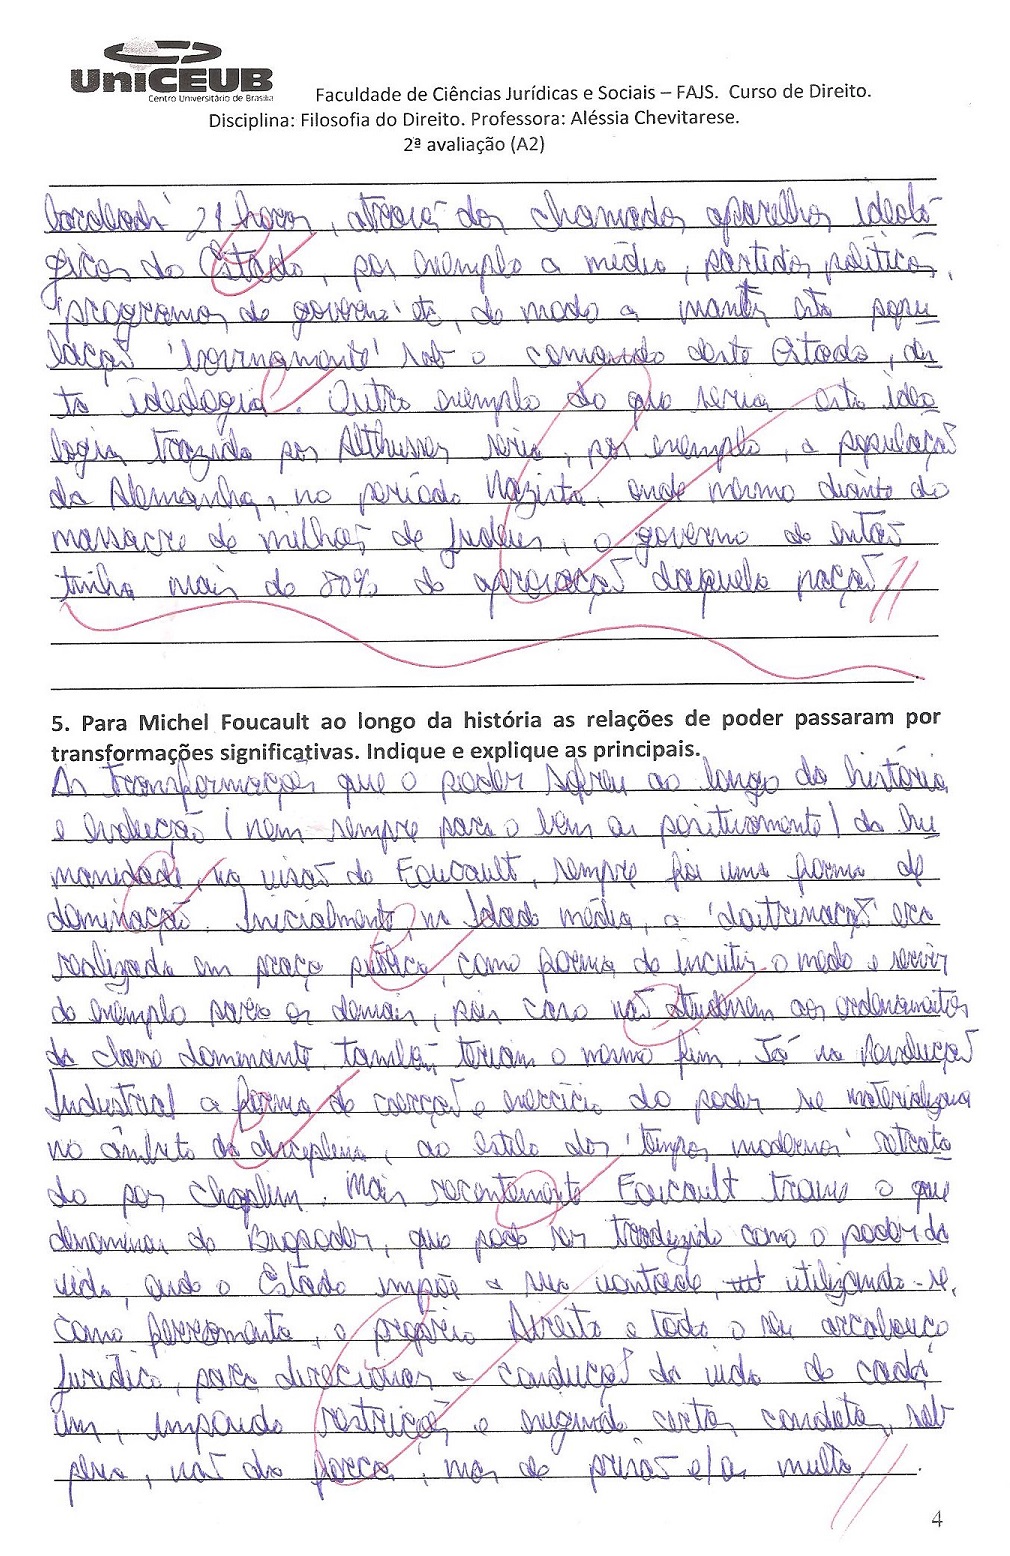 UniCEUB
Centro Universitário de Brasília
Faculdade de Ciências Jurídicas e Sociais – FAJS. Curso de Direito.
Disciplina: Filosofia do Direito. Professora: Aléssia Chevitarese.
2ª avaliação (A2)
horas, através dos chamados aparelhos ideoló
gicos do Estado, por exemplo a mídia, partidos políticos,
programas de governo etc, de modo a manter esta popu
lação sob o comando deste Estado, des
ta ideologia. Outro exemplo do que seria esta ideo
logia trazida por Althusser seria, por exemplo, a população
da Alemanha, no período Nazista, onde mesmo diante do
massacre de milhões de judeus, o governo de então
tinha mais de 80% de aprovação daquela nação
5. Para Michel Foucault ao longo da história as relações de poder passaram por
transformações significativas. Indique e explique as principais.
As transformações que o poder sofreu ao longo da história
e evolução (nem sempre para o bem ou positivamente) da hu
manidade, na visão de Foucault, sempre foi uma forma de
dominação. Inicialmente, na Idade média, a 'doutrinação' era
realizada em praça pública, como forma de incutir o medo e servir
de exemplo para os demais, pois caso não atendessem aos ordenamentos
da classe dominante, também teriam o mesmo fim. Já na Revolução
Industrial a forma de coerção e exercício do poder se materializava
no âmbito da disciplina, ao estilo dos 'tempos modernos' retrata
do por Chaplin. Mais recentemente Foucault trouxe o que
denominou de Biopoder, que pode ser traduzido como o poder da
vida, onde o Estado impõe a sua vontade, utilizando-se,
como ferramenta, o próprio Direito e todo o seu arcabouço
jurídico, para direcionar a condução da vida de cada
um, impondo restrições e exigindo certas condutas, sob
pena, não da forca, mas de prisão e/ou multa
4